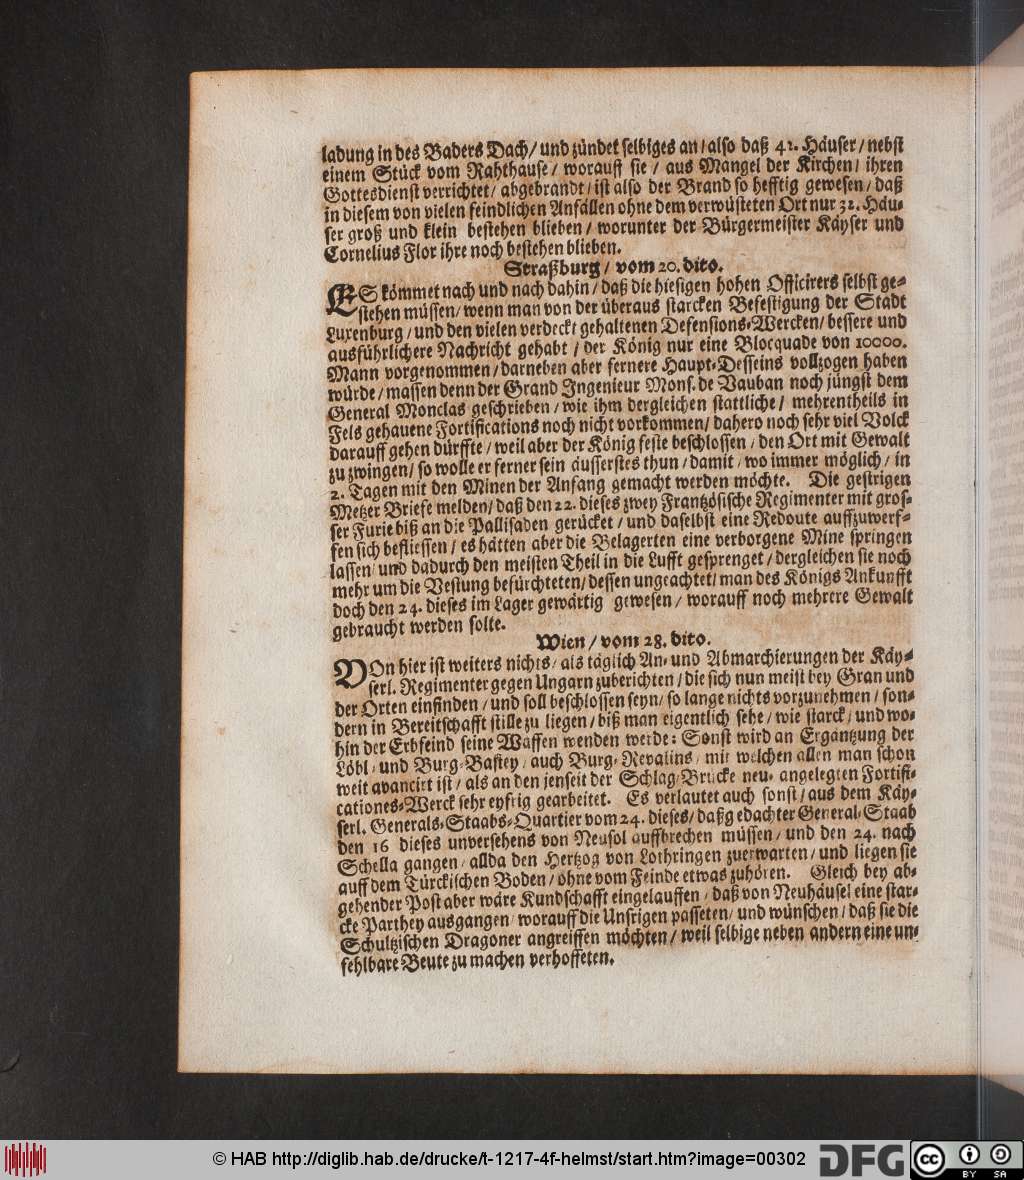 ladung in des Baders Dach/ und zündet selbiges an/ also daß 41. Häuser/ nebst
einem Stück vom Rahthause/ worauff sie/ aus Mangel der Kirchen/ ihren
Gottesdienst verrichtet/ abgebrandt/ ist also der Brand so hefftig gewesen/ daß
in diesem von vielen feindlichen Anfällen ohne dem verwüsteten Ort nur 32. Häu-
ser groß und klein bestehen blieben/ worunter der Bürgermeister Käyser und
Cornelius Flor ihre noch bestehen blieben.
Straßburg/ vom 20. dito.
ES kömmet nach und nach dahin/ daß die hiesigen hohen Officirers selbst ge-
stehen müssen/ wenn man von der überaus starcken Befestigung der Stadt
Luxenburg/ und den vielen verdeckt gehaltenen Defensions-Wercken/ bessere und
ausführlichere Nachricht gehabt/ der König nur eine Blocquade von 10000.
Mann vorgenommen/ darneben aber fernere Haupt-Desseins vollzogen haben
würde/ massen denn der Grand Ingenieur Mons. de Vauban noch jüngst dem
General Monclas geschrieben/ wie ihm dergleichen stattliche/ mehrentheils in
Fels gehauene Fortifications noch nicht vorkommen/ dahero noch sehr viel Volck
darauff gehen dürffte/ weil aber der König feste beschlossen/ den Ort mit Gewalt
zu zwingen/ so wolle er ferner sein äusserstes thun/ damit/ wo immer möglich/ in
2. Tagen mit den Minen der Anfang gemacht werden möchte. Die gestrigen
Metzer Briefe melden/ daß den 22. dieses zwey Frantzösische Regimenter mit gros-
ser Furie biß an die Pallisaden gerücket/ und daselbst eine Redoute auffzuwerf-
fen sich befliessen/ es hätten aber die Belagerten eine verborgene Mine springen
lassen/ und dadurch den meisten Theil in die Lufft gesprenget/ dergleichen sie noch
mehr um die Vestung befürchteten/ dessen ungeachtet/ man des Königs Ankunfft
doch den 24. dieses im Lager gewärtig gewesen/ worauff noch mehrere Gewalt
gebraucht werden solte.
Wien/ vom 28. dito.
VOn hier ist weiters nichts/ als täglich An- und Abmarchierungen der Käy-
serl. Regimenter gegen Ungarn zuberichten/ die sich nun meist bey Gran und
der Orten einfinden/ und soll beschlossen seyn/ so lange nichts vorzunehmen/ son-
dern in Bereitschafft stille zu liegen/ biß man eigentlich sehe/ wie starck/ und wo-
hin der Erbfeind seine Waffen wenden werde: Sonst wird an Ergäntzung der
Löbl/ und Burg-Bastey/ auch Burg-Revalins/ mit welchen allen man schon
weit avancirt ist/ als an den jenseit der Schlag-Brücke neu-angelegten Fortifi-
cationes-Werck sehr eyfrig gearbeitet. Es verlautet auch sonst/ aus dem Käy-
serl. Generals-Staabs-Quartier vom 24. dieses/ daß gedachter General-Staab
den 16 dieses unversehens von Neusol auffbrechen müssen/ und den 24. nach
Schella gangen/ allda den Hertzog von Lothringen zuerwarten/ und liegen sie
auff dem Türckischen Boden/ ohne vom Feinde etwas zuhören. Gleich bey ab-
gehender Post aber wäre Kundschafft eingelauffen/ daß von Neuhäusel eine star-
cke Parthey ausgangen/ worauff die Unsrigen passeten/ und wünschen/ daß sie die
Schultzischen Dragoner angreiffen möchten/ weil selbige neben andern eine un-
fehlbare Beute zu machen verhoffeten.
© HAB http://diglib.hab.de/drucke/t-1217-4f-helmst/start.htm?image=00302
DFG
cc BY SA